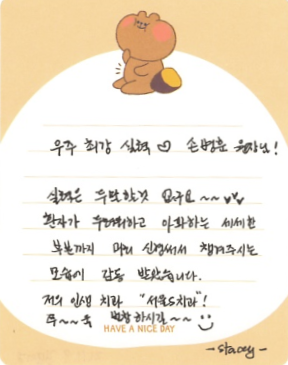 우주 최강 실력 ♡ 손병훈 원장님!
실력은 두말할것 없구요 ~~ ♥♥
환자가 두려워하고 아파하는 세세한
부분까지 미리 신경써서 챙겨주시는
모습에 감동 받았습니다.
저의 인생 치과 "서울S치과"!
쭈~~욱 번창하시길~~
HAVE A NICE DAY
- stacey -